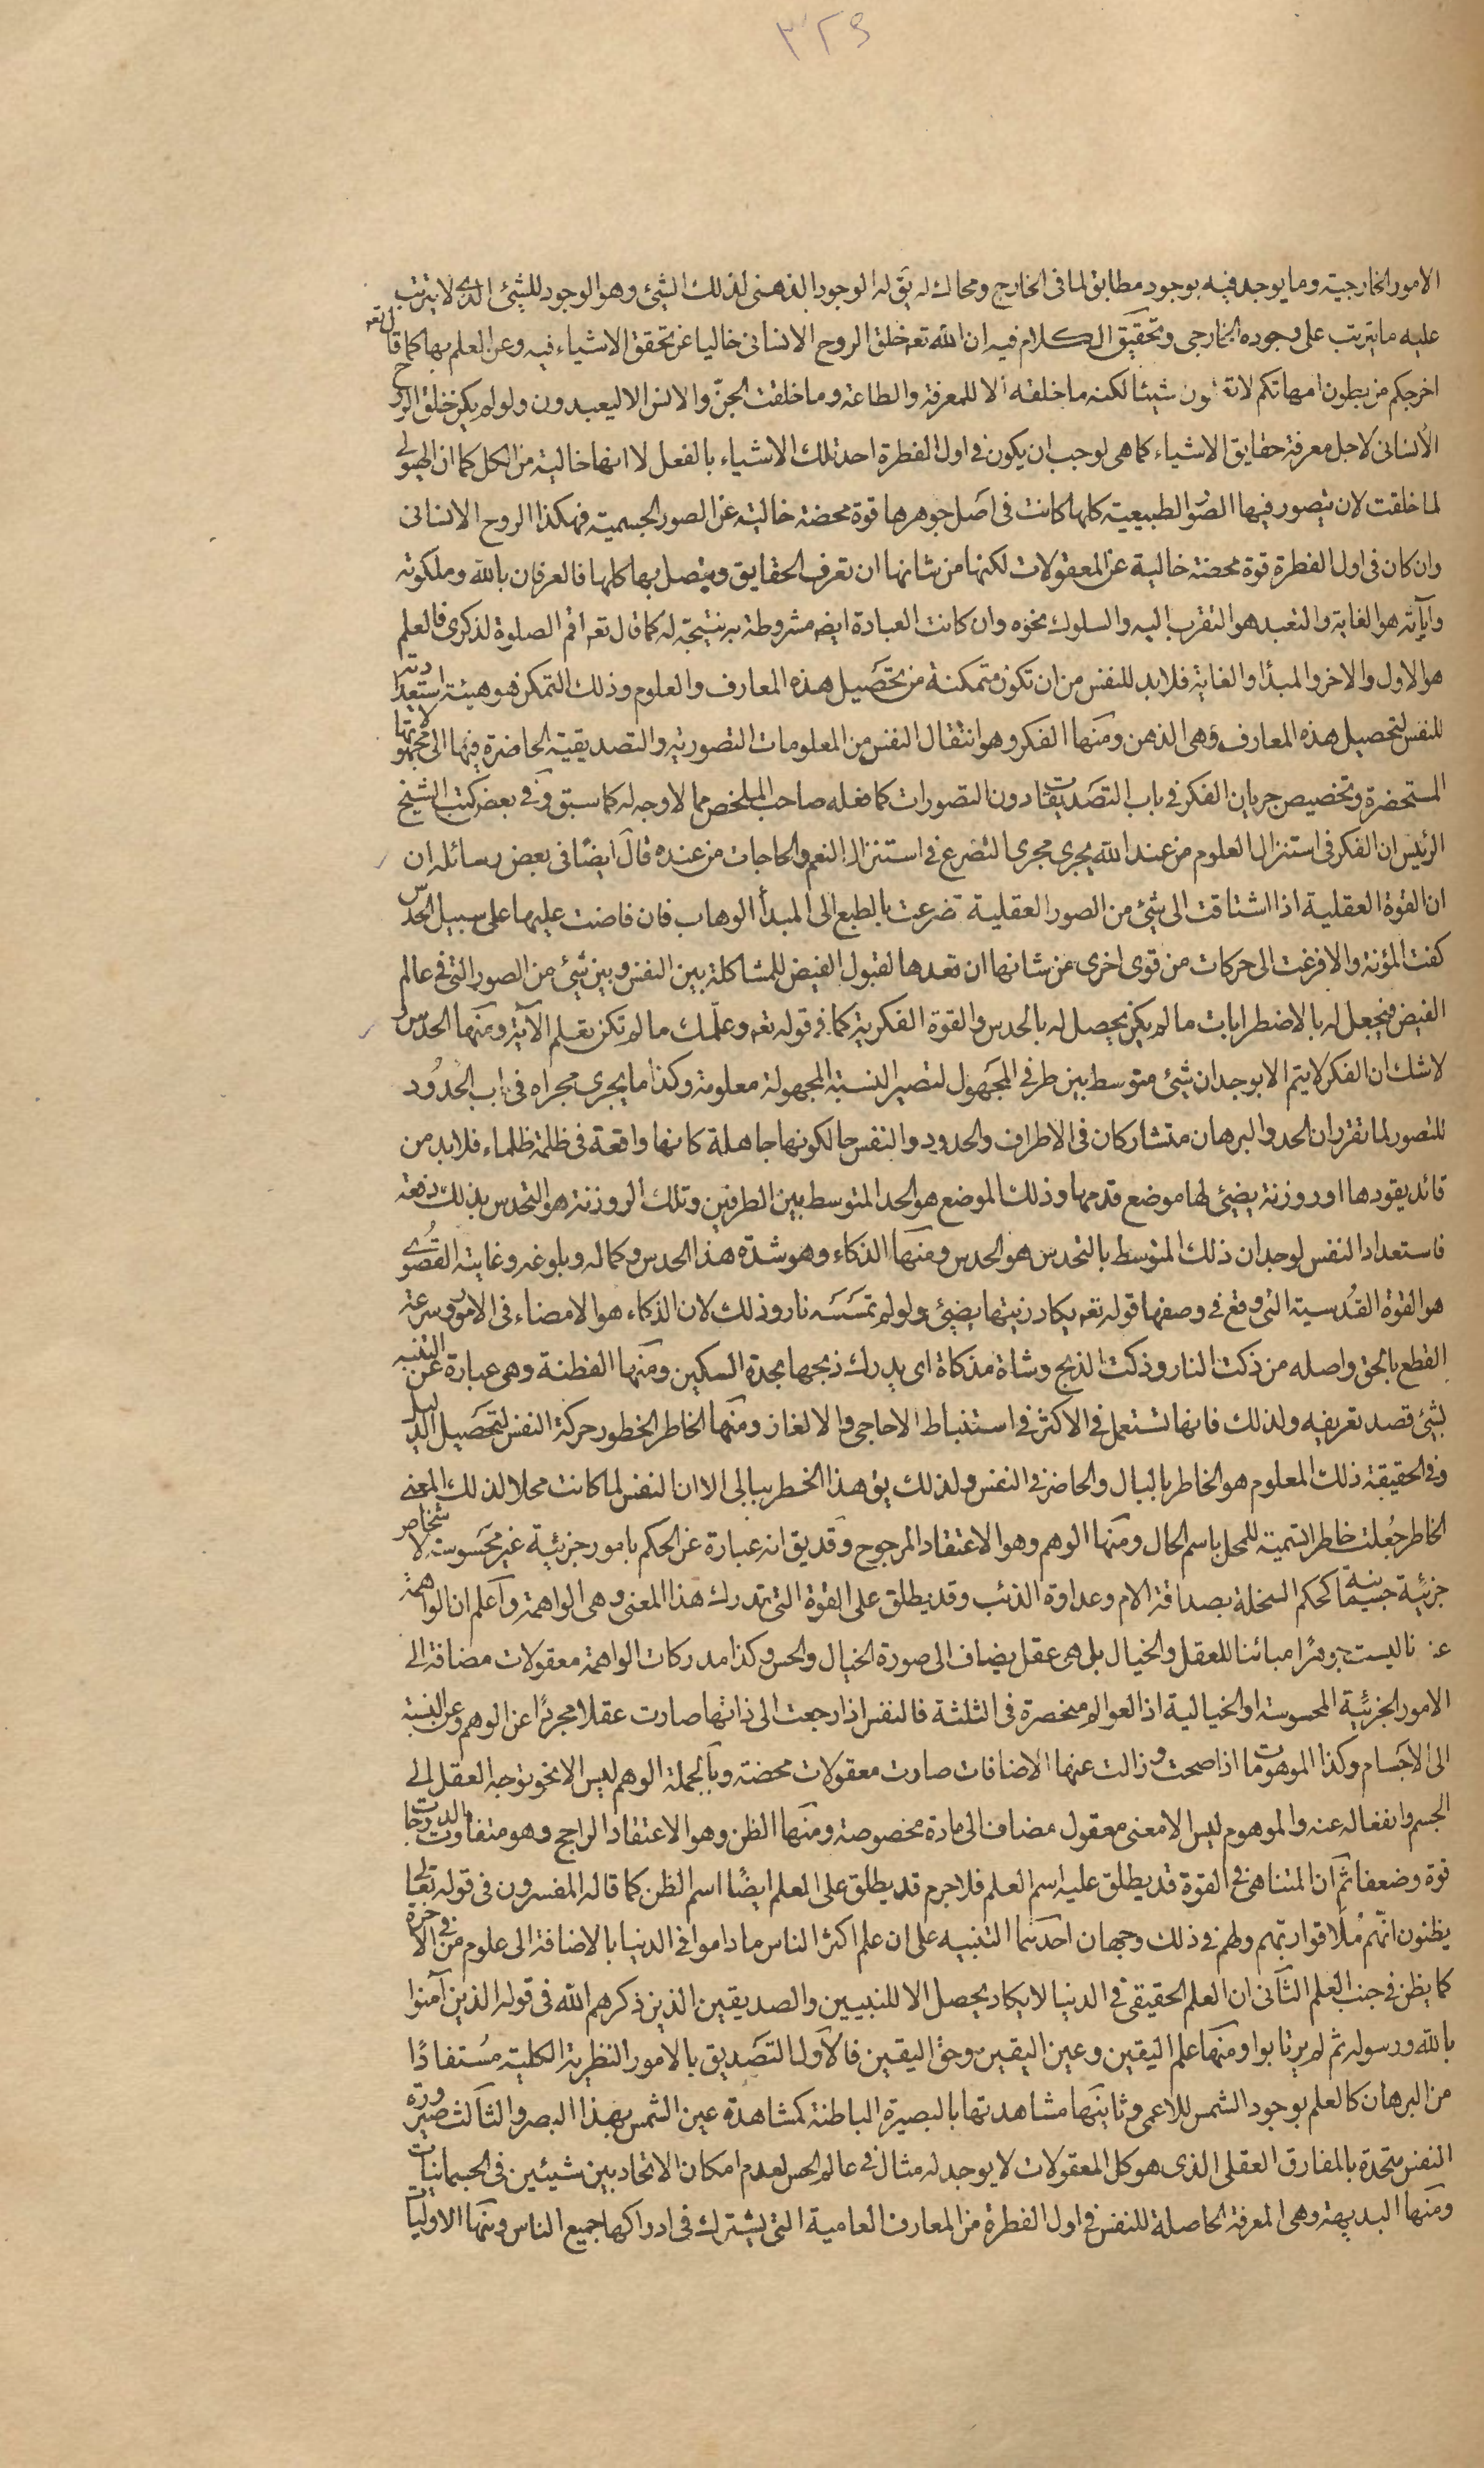 ٣٢٩
الامور الخارجية وما يوجد فيه بوجود مطابق لما فى الخارج ومحاك له يق له الوجود الذهنى لذلك الشئ وهو الوجود للشئ الذى لا يترتب
عليه ما يترتب على وجوده الخارجى وتحقيق الكلام فيه ان الله تعه خلق الروح الانسانى خاليا عن تحقق الاشياء فيه وعن العلم بها كما قال تعه
اخرجكم من بطون امهاتكم لا تعلمون شيئا لكنه ما خلقه الا للمعرفة والطاعة وما خلقت الجنّ والانس الا ليعبدون ولو لم يكن خلق الروح
الانسانى لاجل معرفة حقايق الاشياء كما هى لوجب ان يكون فى اول الفطرة احد تلك الاشياء بالفعل لا انها خالية من الكل كما ان الهيولى
لما خلقت لان يتصور فيها الصّور الطبيعية كلها كانت فى اصل جوهرها قوة محضة خالية عن الصور الجسمية فهكذا الروح الانسانى
وان كان فى اول الفطرة قوة محضة خالية عن المعقولات لكنها من شانها ان تعرف الحقايق ويتصل بها كلها فالعرفان بالله وملكوته
وآياته هو الغاية والتعبد هو التقرب اليه والسلوك نحوه وان كانت العبادة ايضه مشروطة به نتيجة له كما قال تعه اقم الصلوة لذكرى فالعلم
هو الاول والاخر والمبدأ والغاية فلا بد للنفس من ان تكون متمكنة من تحصيل هذه المعارف والعلوم وذلك التمكن هو هيئة استعدادية
للنفس لتحصيل هذه المعارف وهى الذهن ومنها الفكر وهو انتقال النفس من المعلومات التصورية والتصديقية الحاضرة فيها الى مجهولاتها
المستحضرة وتخصيص جريان الفكر فى باب التصديقات دون التصورات كما فعله صاحب الملخص مما لا وجه له كما سبق وفى بعض كتب الشيخ
الرئيس ان الفكر فى استنزال العلوم من عند الله يجرى مجرى التضرع فى استنزال النعم والحاجات من عنده قال ايضًا فى بعض رسائله ان
ان القوة العقلية اذا اشتاقت الى شئ من الصور العقلية تضرعت بالطبع الى المبدأ الوهاب فان فاضت عليها على سبيل الحدس
كفت المؤنة والا فزعت الى حركات من قوى اخرى من شانها ان تعدها لقبول الفيض للمشاكلة بين النفس وبين شئ من الصور التى فى عالم
الفيض فيحصل له بالاضطرابات ما لم يكن يحصل له بالحدس والقوة الفكرية كما فى قوله تعه وعلّمك ما لم تكن تعلم الآية ومنها الحدس و
لا شك ان الفكر لا يتم الا بوجدان شئ متوسط بين طرفى المجهول لتصير النسبة المجهولة معلومة وكذا ما يجرى مجراه فى باب الحدُود
للتصور لما تقرر ان الحد والبرهان متشاركان فى الاطراف والحدود والنفس حالكونها جاهلة كانها واقعة فى ظلمة ظلماء فلا بد من
قائد يقودها او روزنة يضيئ لها موضع قدمها وذلك الموضع هو الحد المتوسط بين الطرفين وتلك الروزنة هو التحدس بذلك دفعة
فاستعداد النفس لوجدان ذلك المتوسط بالتحدس هو الحدس ومنها الذكاء وهو شدة هذا الحدس وكماله وبلوغه وغايته القصُوى
هو القوة القُدسية التى وقع فى وصفها قوله تعه يكاد زيتها يضيئ ولو لم تمسَسه نار وذلك لان الذكاء هو الامضاء فى الامور وسرعة
القطع بالحق واصله من ذكت النار وذكت الذبح وشاة مذكاة اى يدرك ذبحها بحدة السكين ومنها الفطنة وهى عبارة عن التنبه
بشئ قصد تعريفه ولذلك فانها تستعمل فى الاكثر فى استنباط الاحاجى والالغاز ومنها الخاطر الخطور حركة النفس لتحصيل الدليل
وفى الحقيقة ذلك المعلوم هو الخاطر بالبال والحاضر فى النفس ولذلك يق هذا الخطر ببالى الا ان النفس لما كانت محلا لذلك المعنى
الخاطر جُعلت خاطرا تسمية للمحل باسم الحال ومنها الوهم وهو الاعتقاد المرجوح وقد يق انه عبارة عن الحكم بامور جزئية غير محسوسة لاشخاص
جزئية جسمانية كحكم السخلة بصداقة الام وعداوة الذئب وقد يطلق على القوة التى تدرك هذا المعنى وهى الواهمة واعلم ان الواهمة
عندنا ليست جوهرا مبائنا للعقل والخيال بل هى عقل يضاف الى صورة الخيال والحس وكذا مدركات الواهمة معقولات مضافة الى
الامور الجزئية المحسوسة او الخيالية اذ العوالم منحصرة فى الثلثة فالنفس اذا رجعت الى ذاتها صارت عقلا مجردًا عن الوهم وعن النسبة
الى الاجسام وكذا الموهومات اذا صحت وزالت عنها الاضافات صارت معقولات محضة وبالجملة الوهم ليس الا نحو توجه العقل الى
الجسم وانفعاله عنه والموهوم ليس الا معنى معقول مضاف الى مادة مخصوصة ومنها الظن وهو الاعتقاد الراجح وهو متفاوت الدرجات
قوة وضعفا ثم ان المتناهى فى القوة قد يطلق عليه اسم العلم فلا جرم قد يطلق على العلم ايضًا اسم الظن كما قاله المفسرون فى قوله تعالى
يظنون انهّم مُلاقوا ربّهم ولهم فى ذلك وجهان احدهما التنبيه على ان علم اكثر الناس ما داموا فى الدنيا بالاضافة الى علوم من فى الاخرة
كما يظن فى جنب العلم الثانى ان العلم الحقيقى فى الدنيا لا يكاد يحصل الا للنبيين والصديقين الذين ذكرهم الله فى قوله الذين آمنوا
بالله ورسوله ثم لم يرتابوا ومنها علم اليقين وعين اليقين وحق اليقين فالاول التصديق بالامور النظرية الكلية مُستفادًا
من البرهان كالعلم بوجود الشمس للاعمى وثانيها مشاهدتها بالبصيرة الباطنة كمشاهدة عين الشمس بهذا البصر والثالث صيرورة
النفس متحدة بالمفارق العقلى الذى هو كل المعقولات لا يوجد له مثال فى عالم الحس لعدم امكان الاتحاد بين شيئين فى الجسمانيات
ومنها البديهة وهى المعرفة الحاصلة للنفس فى اول الفطرة من المعارف العامية التى يشترك فى ادراكها جميع الناس ومنها الاوليات